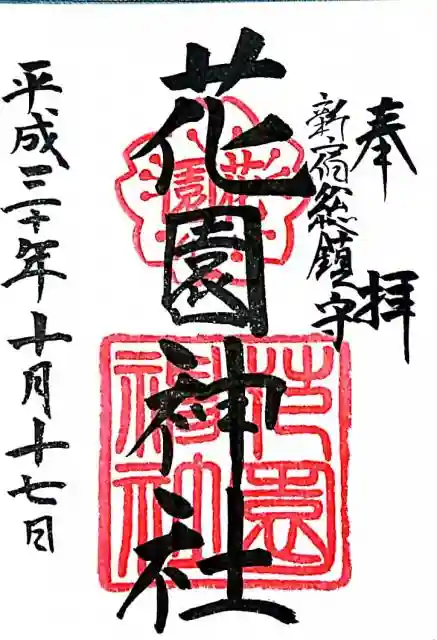 奉拝
新宿総鎮守
花園神社
花園
花園神社
平成三十年十月十七日